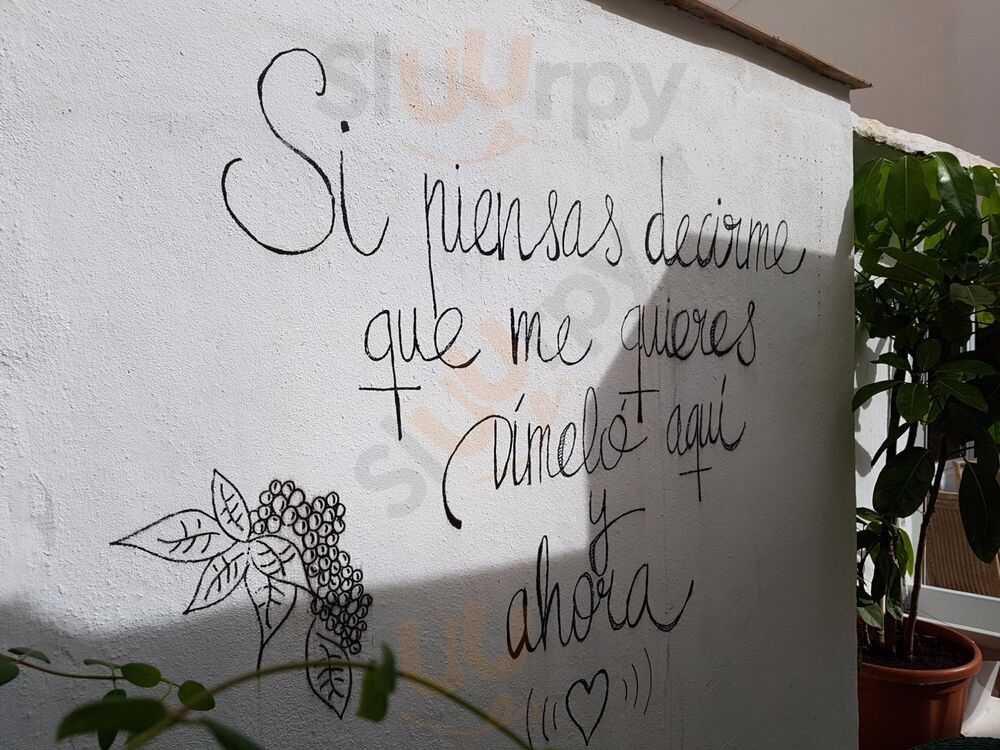 Sluurpy
Si piensas decirme
que me quieres
Sluurpy
Dímeló aquí
y
ahora